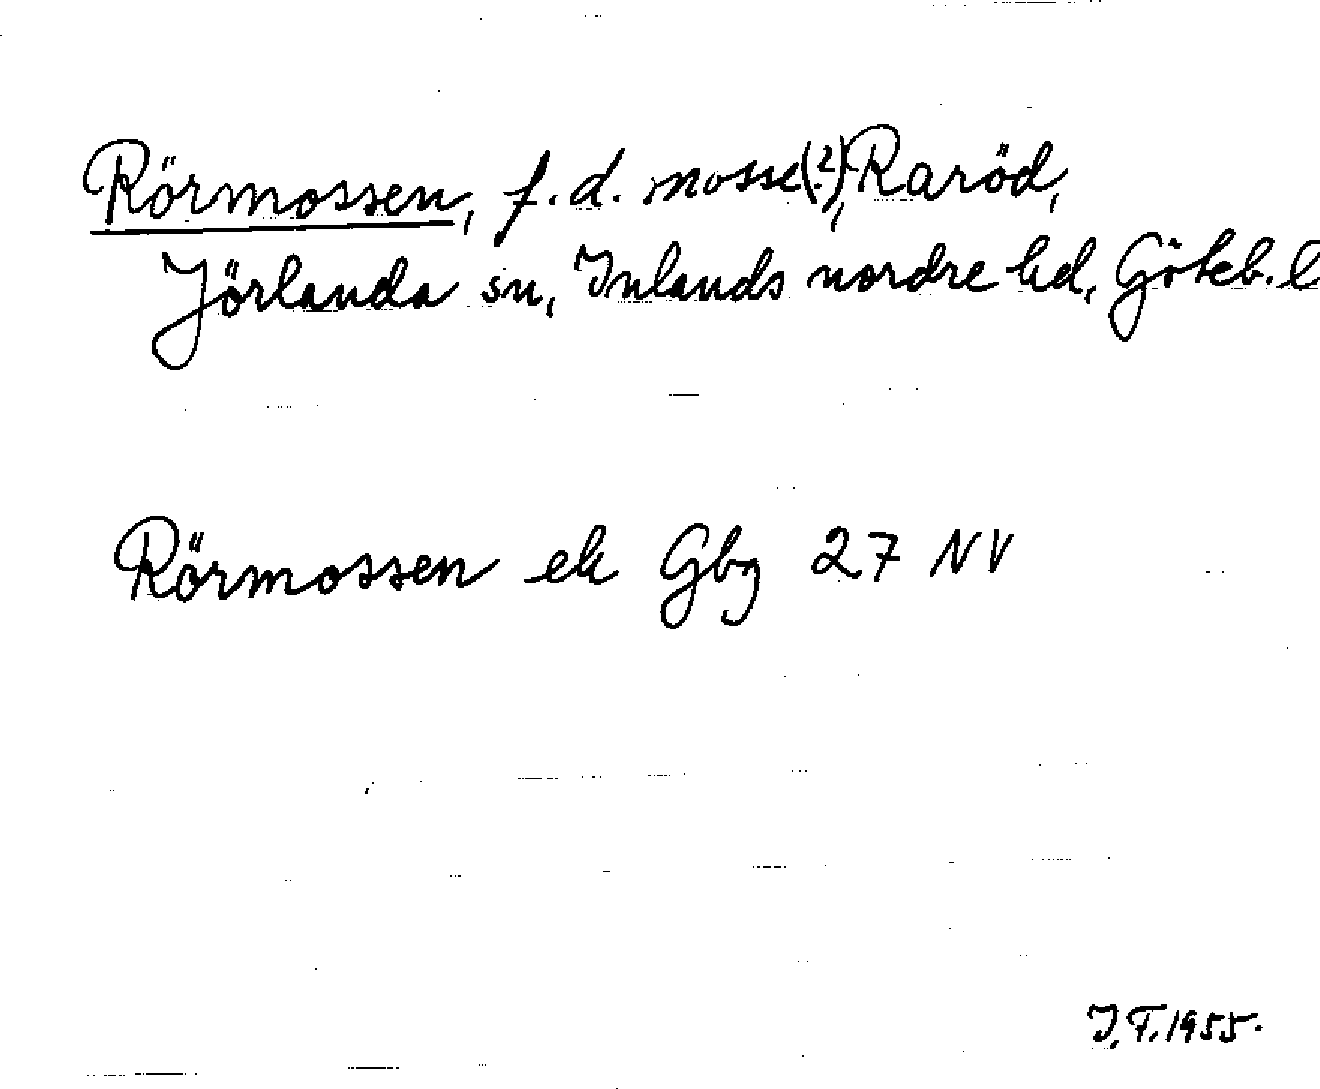 Rörmossen, f.d. mosse(?), Raröd,
Jörlanda sn, Inlands nordre hd, Göteb. l
Rörmossen ek Gbg 27 NV
J.T. 1955.